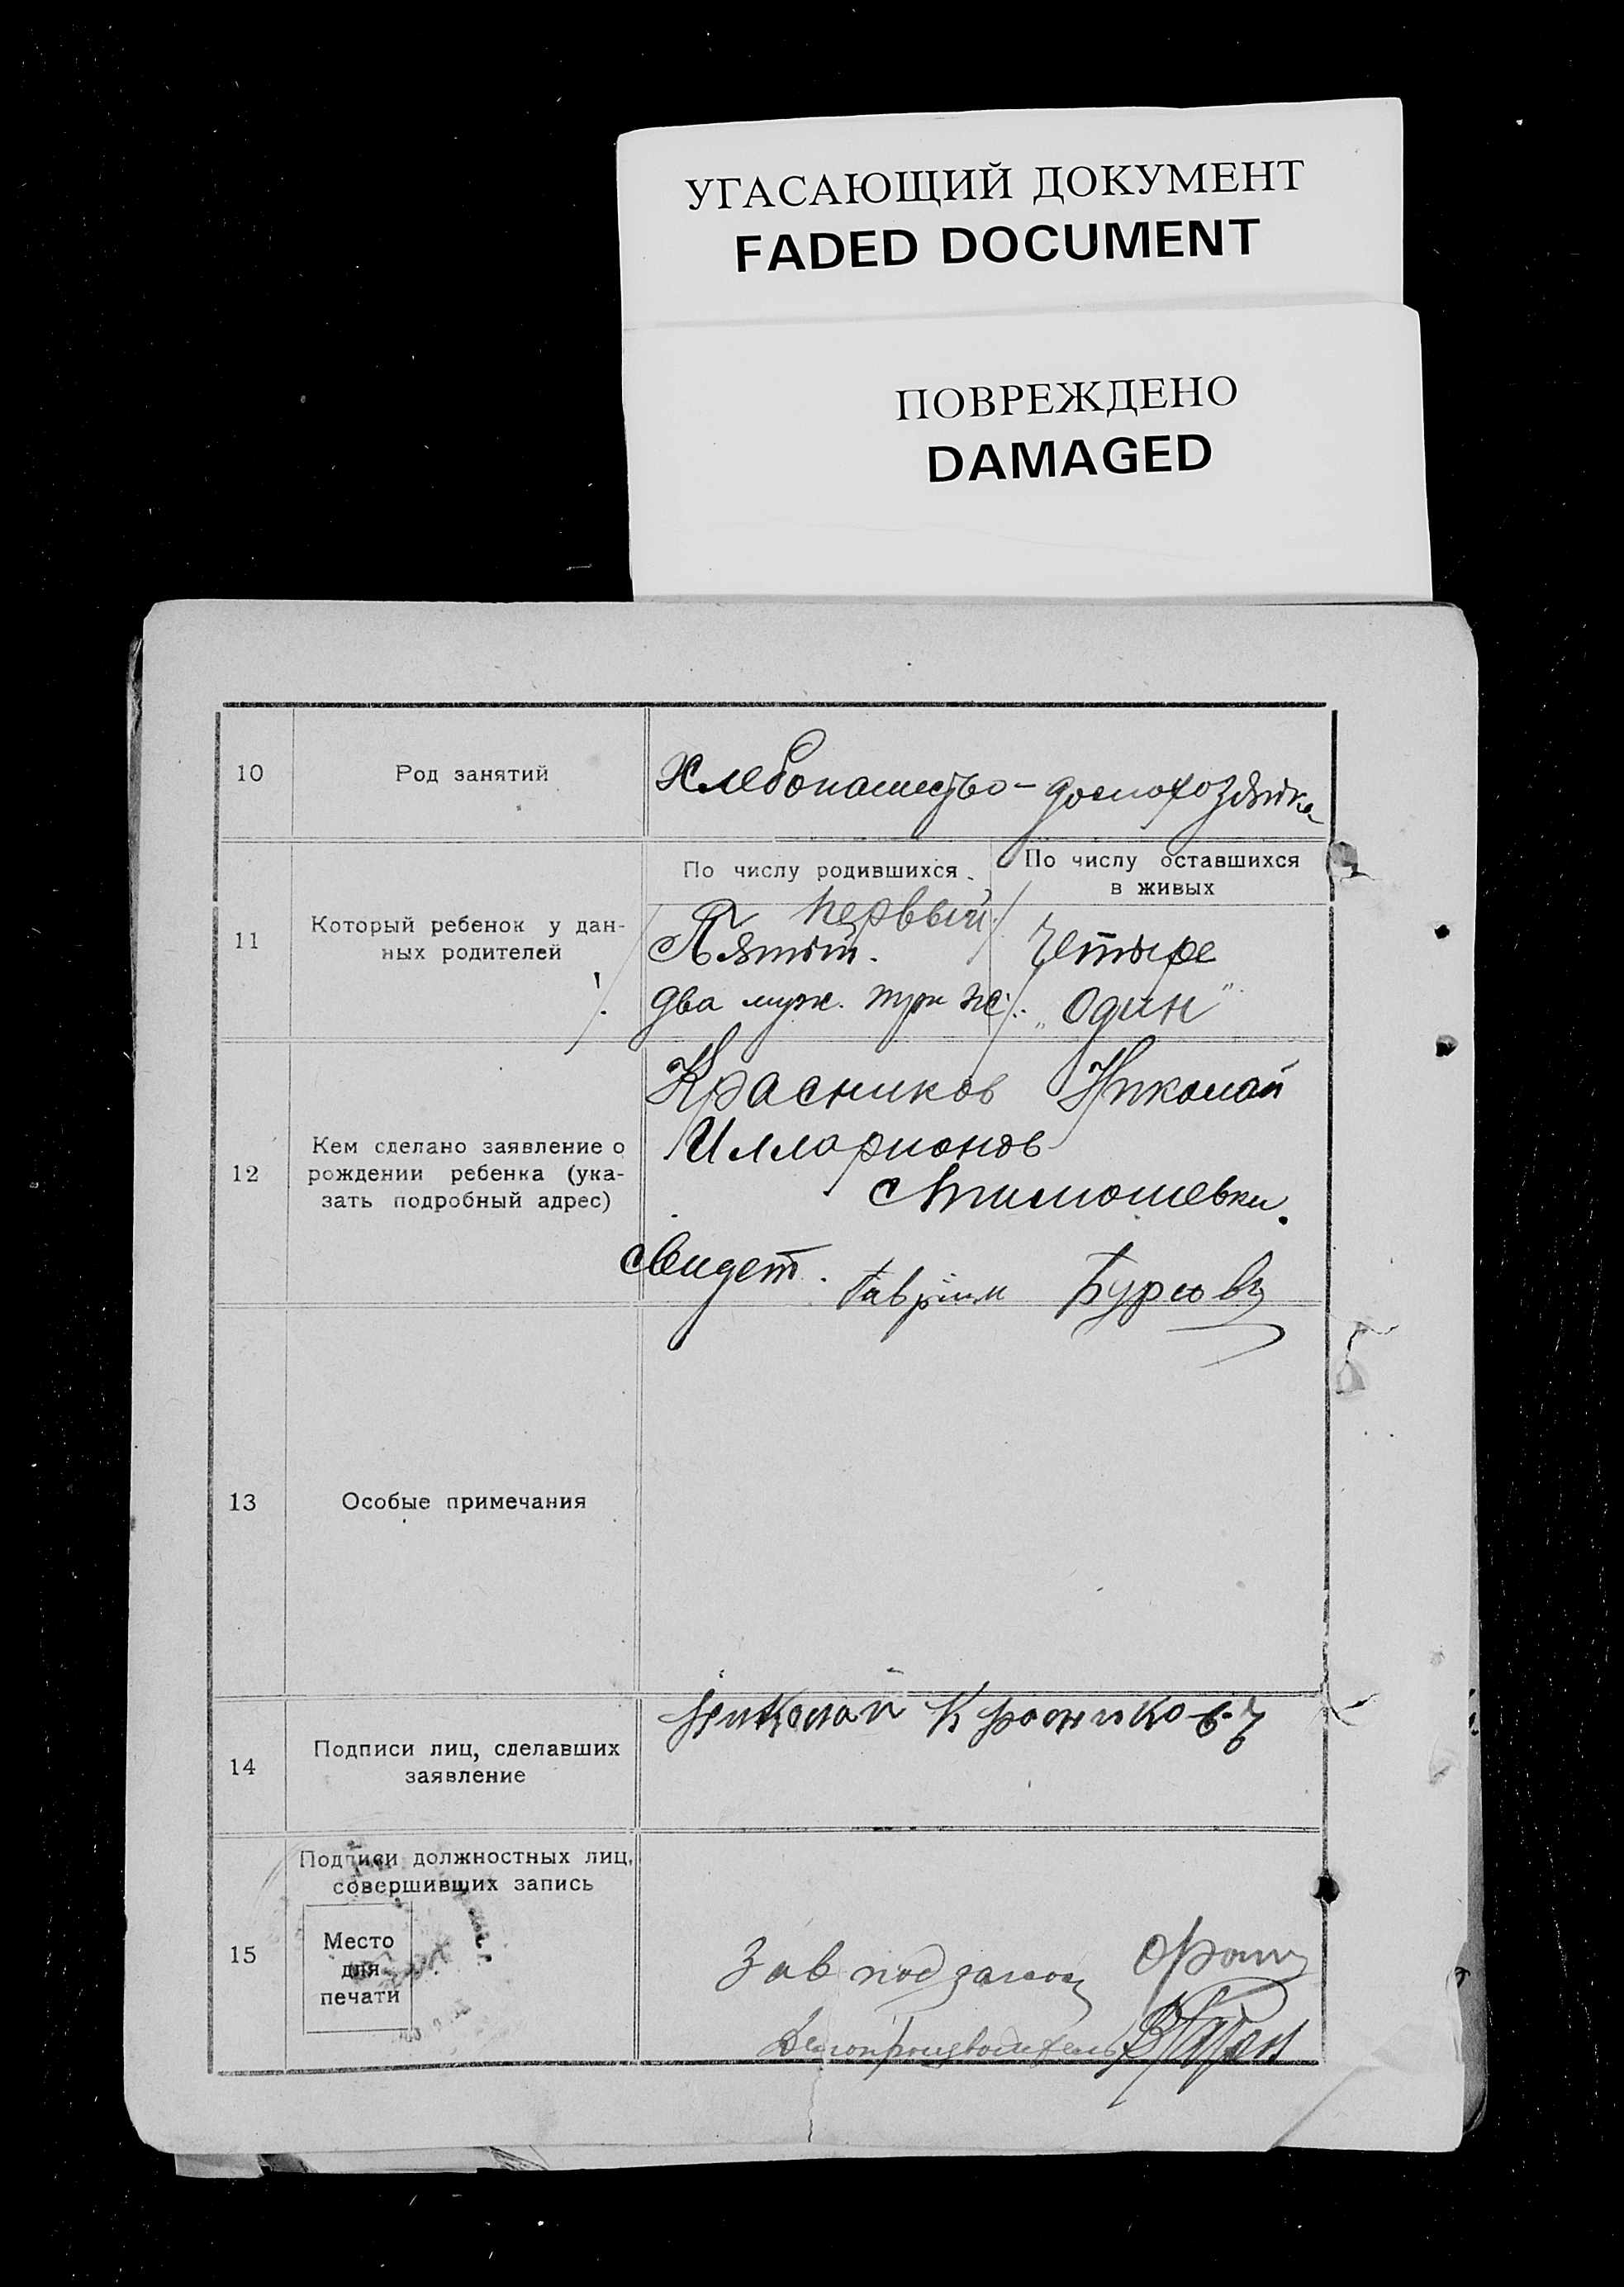 УГАСАЮЩИЙ ДОКУМЕНТ
FADED DOCUMENT
ПОВРЕЖДЕНО
DAMAGED
10 Род занятий Хлебопашество – домохозяйка
11 Который ребенок у дан-
ных родителей
По числу родившихся
По числу оставшихся
в живых
первый
Пятый. Четыре
два муж. три ж. „Один"
12 Кем сделано заявление о
рождении ребенка (ука-
зать подробный адрес)
Красников Николай
Илларионов
с Тимошевки.
свидет. Гавриил
13 Особые примечания
14 Подписи лиц, сделавших
заявление
Николай Красниковъ
15 Подписи должностных лиц,
совершивших запись
Место
для
печати
Зав
Делопроизводитель